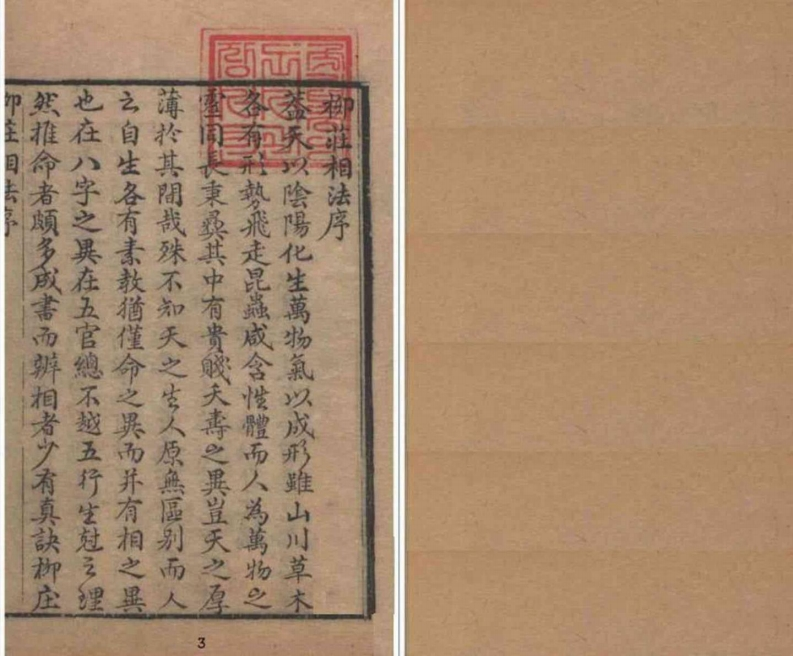 柳莊相法序
蓋天以陰陽化生萬物氣以成形雖山川草木
各有形勢飛走昆蟲咸含性體而人為萬物之
靈同長秉彝其中有貴賤夭壽之異豈天之厚
薄於其間哉殊不知天之生人原無區别而人
云自生各有素教猶僅命之異而并有相之異
也在八字之異在五官總不越五行生尅之理
然推命者頗多成書而辨相者少有真訣柳庄
柳庄相法序
3